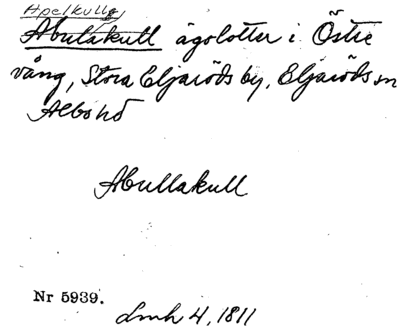 Apelkulle
Abulakull ägolotter i Östre
vång, Stora Eljaröds by, Eljaröds sn
Albo hd
Abullakull
Nr 5939.
Lmh 4, 1811